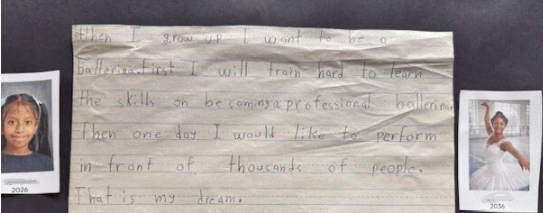 When I grow up I want to be a
ballerina.First I will train hard to learn
the skills on becoming a professional ballerina.
Then one day I would like to perform
in front of thousands of people.
That is my dream.
2026
2036